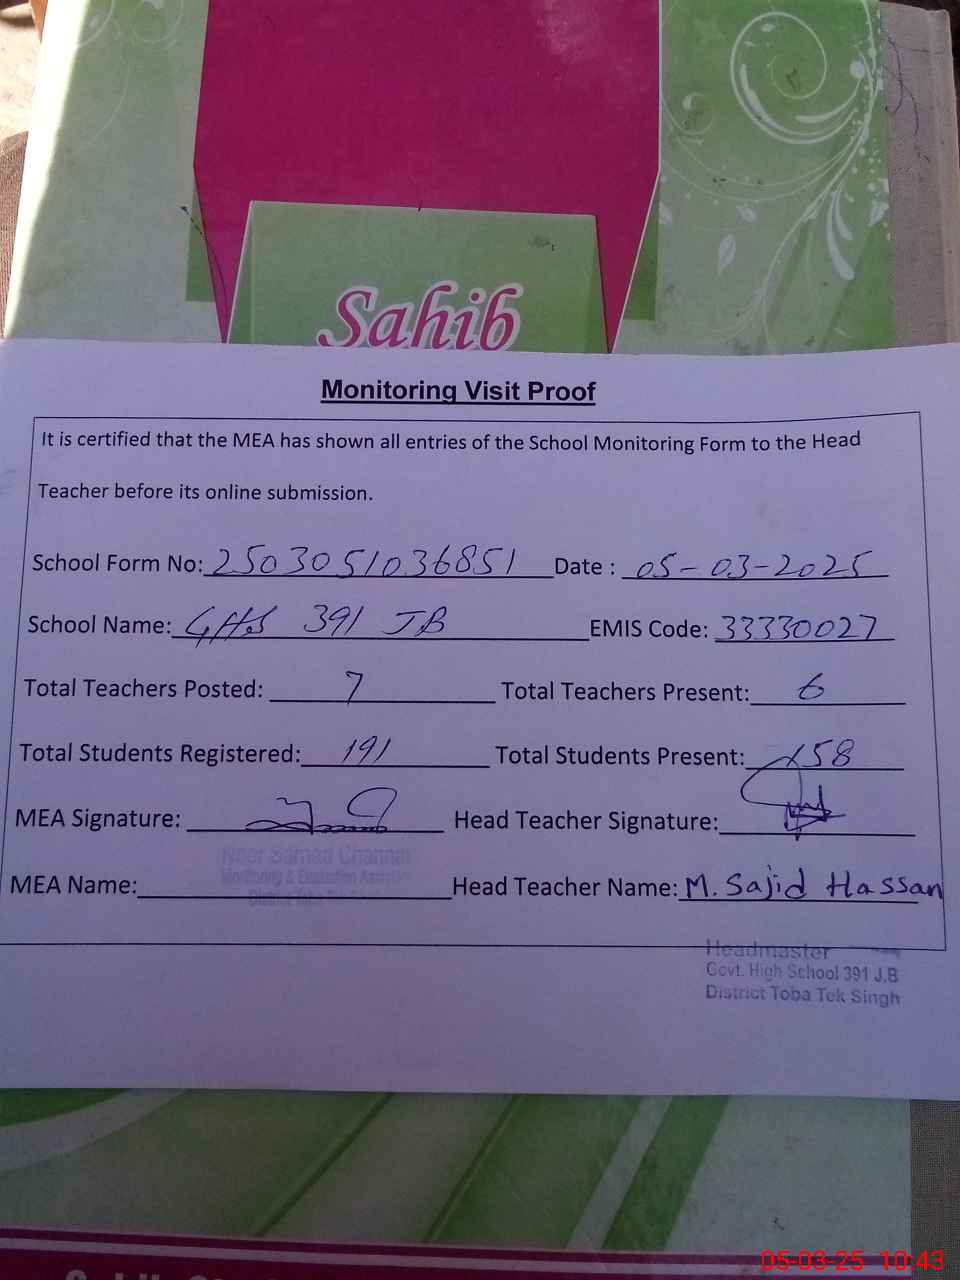 Sahib
Monitoring Visit Proof
It is certified that the MEA has shown all entries of the School Monitoring Form to the Head
Teacher before its online submission.
School Form No: 2503051036851 Date : 05-03-2025
School Name: GHS 391 JB EMIS Code: 33330027
Total Teachers Posted: 7 Total Teachers Present: 6
Total Students Registered: 191 Total Students Present: 158
MEA Signature: Head Teacher Signature:
Noor Samad Channar
Monitoring & Evaluation Assistant
District Toba Tek
MEA Name: Head Teacher Name: M. Sajid Hassan
Headmaster
Govt. High School 391 J.B
District Toba Tek Singh
05-03-25 10:43